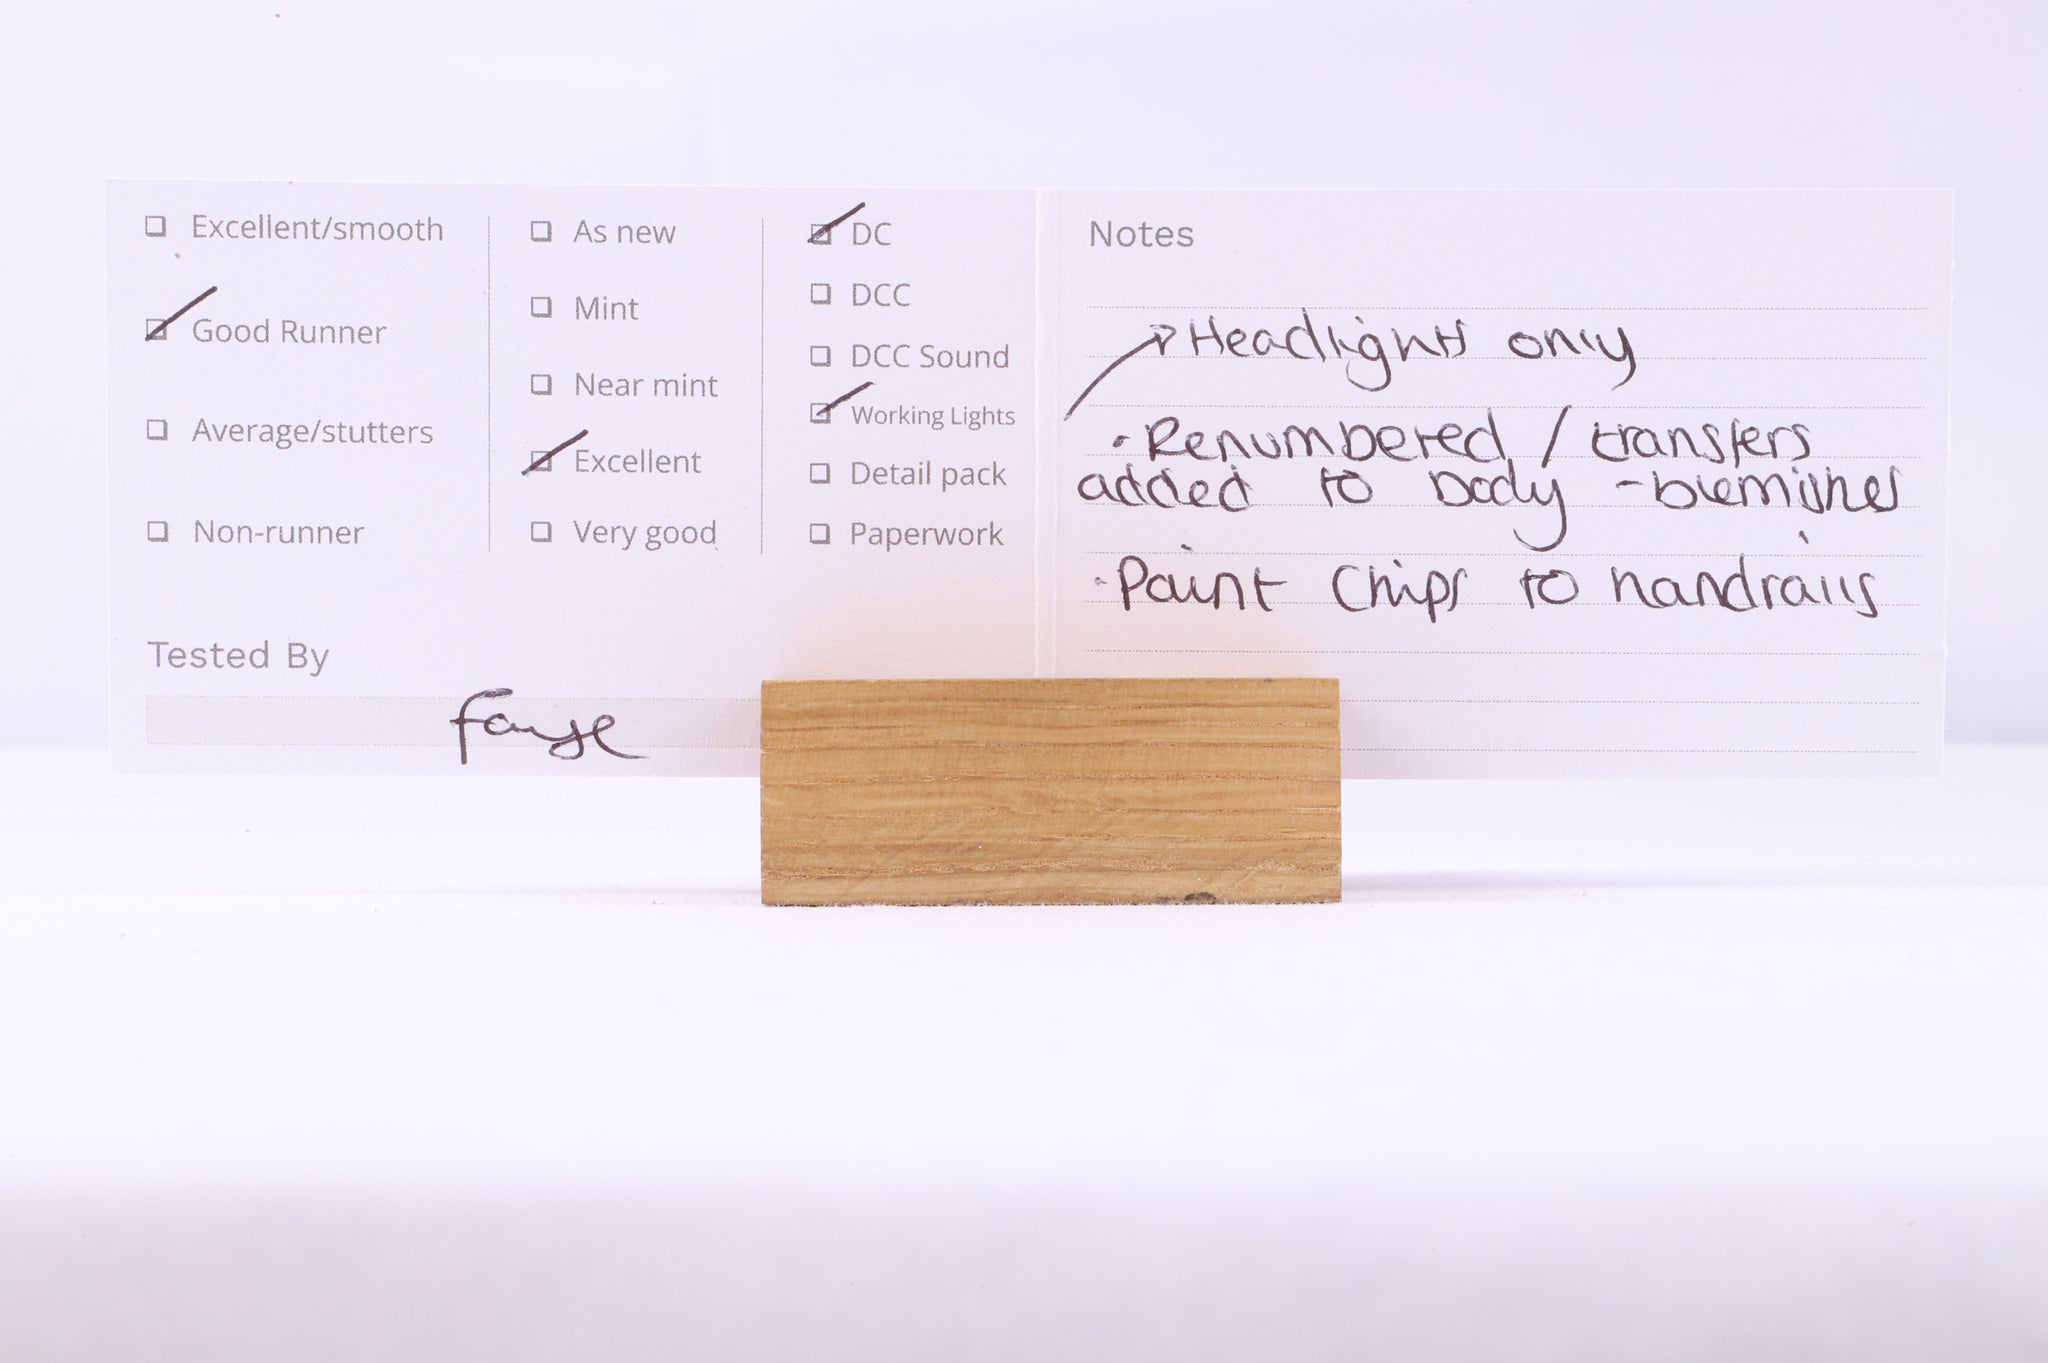 Excellent/smooth
Good Runner
Average/stutters
Non-runner
As new
Mint
Near mint
Excellent
Very good
DC
DCC
DCC Sound
Working Lights
Detail pack
Paperwork
Tested By
Notes
Headlights only
• Renumbered / transfers
added to body - blemishes
• Paint Chips to handrails